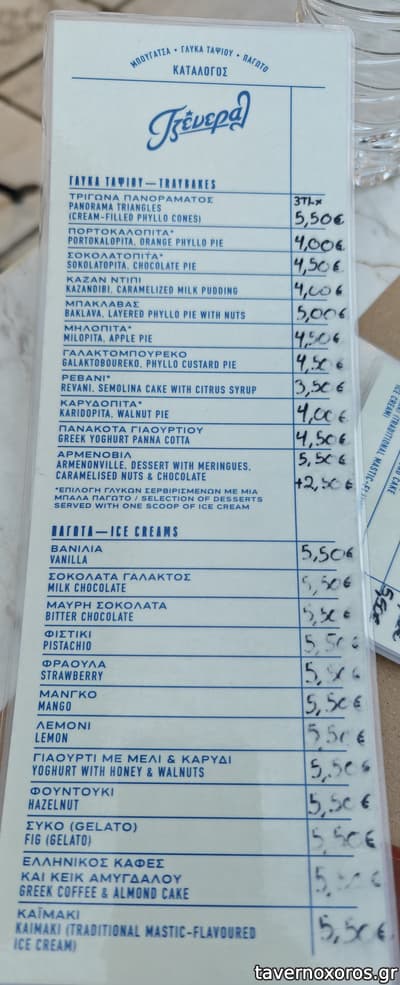 ΜΠΟΥΓΑΤΣΑ • ΓΛΥΚΑ ΤΑΨΙΟΥ • ΠΑΓΩΤΟ
ΚΑΤΑΛΟΓΟΣ
Τζένεραλ
ΓΛΥΚΑ ΤΑΨΙΟΥ — TRAYBAKES
ΤΡΙΓΩΝΑ ΠΑΝΟΡΑΜΑΤΟΣ
PANORAMA TRIANGLES
(CREAM-FILLED PHYLLO CONES)
3ΤΜχ
5,50€
ΠΟΡΤΟΚΑΛΟΠΙΤΑ*
PORTOKALOPITA, ORANGE PHYLLO PIE 4,00€
ΣΟΚΟΛΑΤΟΠΙΤΑ*
SOKOLATOPITA, CHOCOLATE PIE 4,50€
ΚΑΖΑΝ ΝΤΙΠΙ
KAZANDIBI, CARAMELIZED MILK PUDDING 4,00€
ΜΠΑΚΛΑΒΑΣ
BAKLAVA, LAYERED PHYLLO PIE WITH NUTS 5,00€
ΜΗΛΟΠΙΤΑ*
MILOPITA, APPLE PIE 4,50€
ΓΑΛΑΚΤΟΜΠΟΥΡΕΚΟ
GALAKTOBOUREKO, PHYLLO CUSTARD PIE 4,50€
ΡΕΒΑΝΙ*
REVANI, SEMOLINA CAKE WITH CITRUS SYRUP 3,50€
ΚΑΡΥΔΟΠΙΤΑ*
KARIDOPITA, WALNUT PIE 4,00€
ΠΑΝΑΚΟΤΑ ΓΙΑΟΥΡΤΙΟΥ
GREEK YOGHURT PANNA COTTA 4,50€
ΑΡΜΕΝΟΒΙΛ 5,50€
ARMENONVILLE, DESSERT WITH MERINGUES,
CARAMELISED NUTS & CHOCOLATE
*ΕΠΙΛΟΓΗ ΓΛΥΚΩΝ ΣΕΡΒΙΡΙΣΜΕΝΩΝ ΜΕ ΜΙΑ +2,50€
ΜΠΑΛΑ ΠΑΓΩΤΟ / SELECTION OF DESSERTS
SERVED WITH ONE SCOOP OF ICE CREAM
ΠΑΓΩΤΑ — ICE CREAMS
ΒΑΝΙΛΙΑ
VANILLA 5,50€
ΣΟΚΟΛΑΤΑ ΓΑΛΑΚΤΟΣ
MILK CHOCOLATE 5,50€
ΜΑΥΡΗ ΣΟΚΟΛΑΤΑ
BITTER CHOCOLATE 5,50€
ΦΙΣΤΙΚΙ
PISTACHIO 5,50€
ΦΡΑΟΥΛΑ
STRAWBERRY 5,50€
ΜΑΝΓΚΟ
MANGO 5,50€
ΛΕΜΟΝΙ
LEMON 5,50€
ΓΙΑΟΥΡΤΙ ΜΕ ΜΕΛΙ & ΚΑΡΥΔΙ
YOGHURT WITH HONEY & WALNUTS 5,50€
ΦΟΥΝΤΟΥΚΙ
HAZELNUT 5,50€
ΣΥΚΟ (GELATO)
FIG (GELATO) 5,50€
ΕΛΛΗΝΙΚΟΣ ΚΑΦΕΣ
ΚΑΙ ΚΕΙΚ ΑΜΥΓΔΑΛΟΥ
GREEK COFFEE & ALMOND CAKE
ΚΑΪΜΑΚΙ
KAIMAKI (TRADITIONAL MASTIC-FLAVOURED 5,50€
ICE CREAM)
tavernoxoros.gr